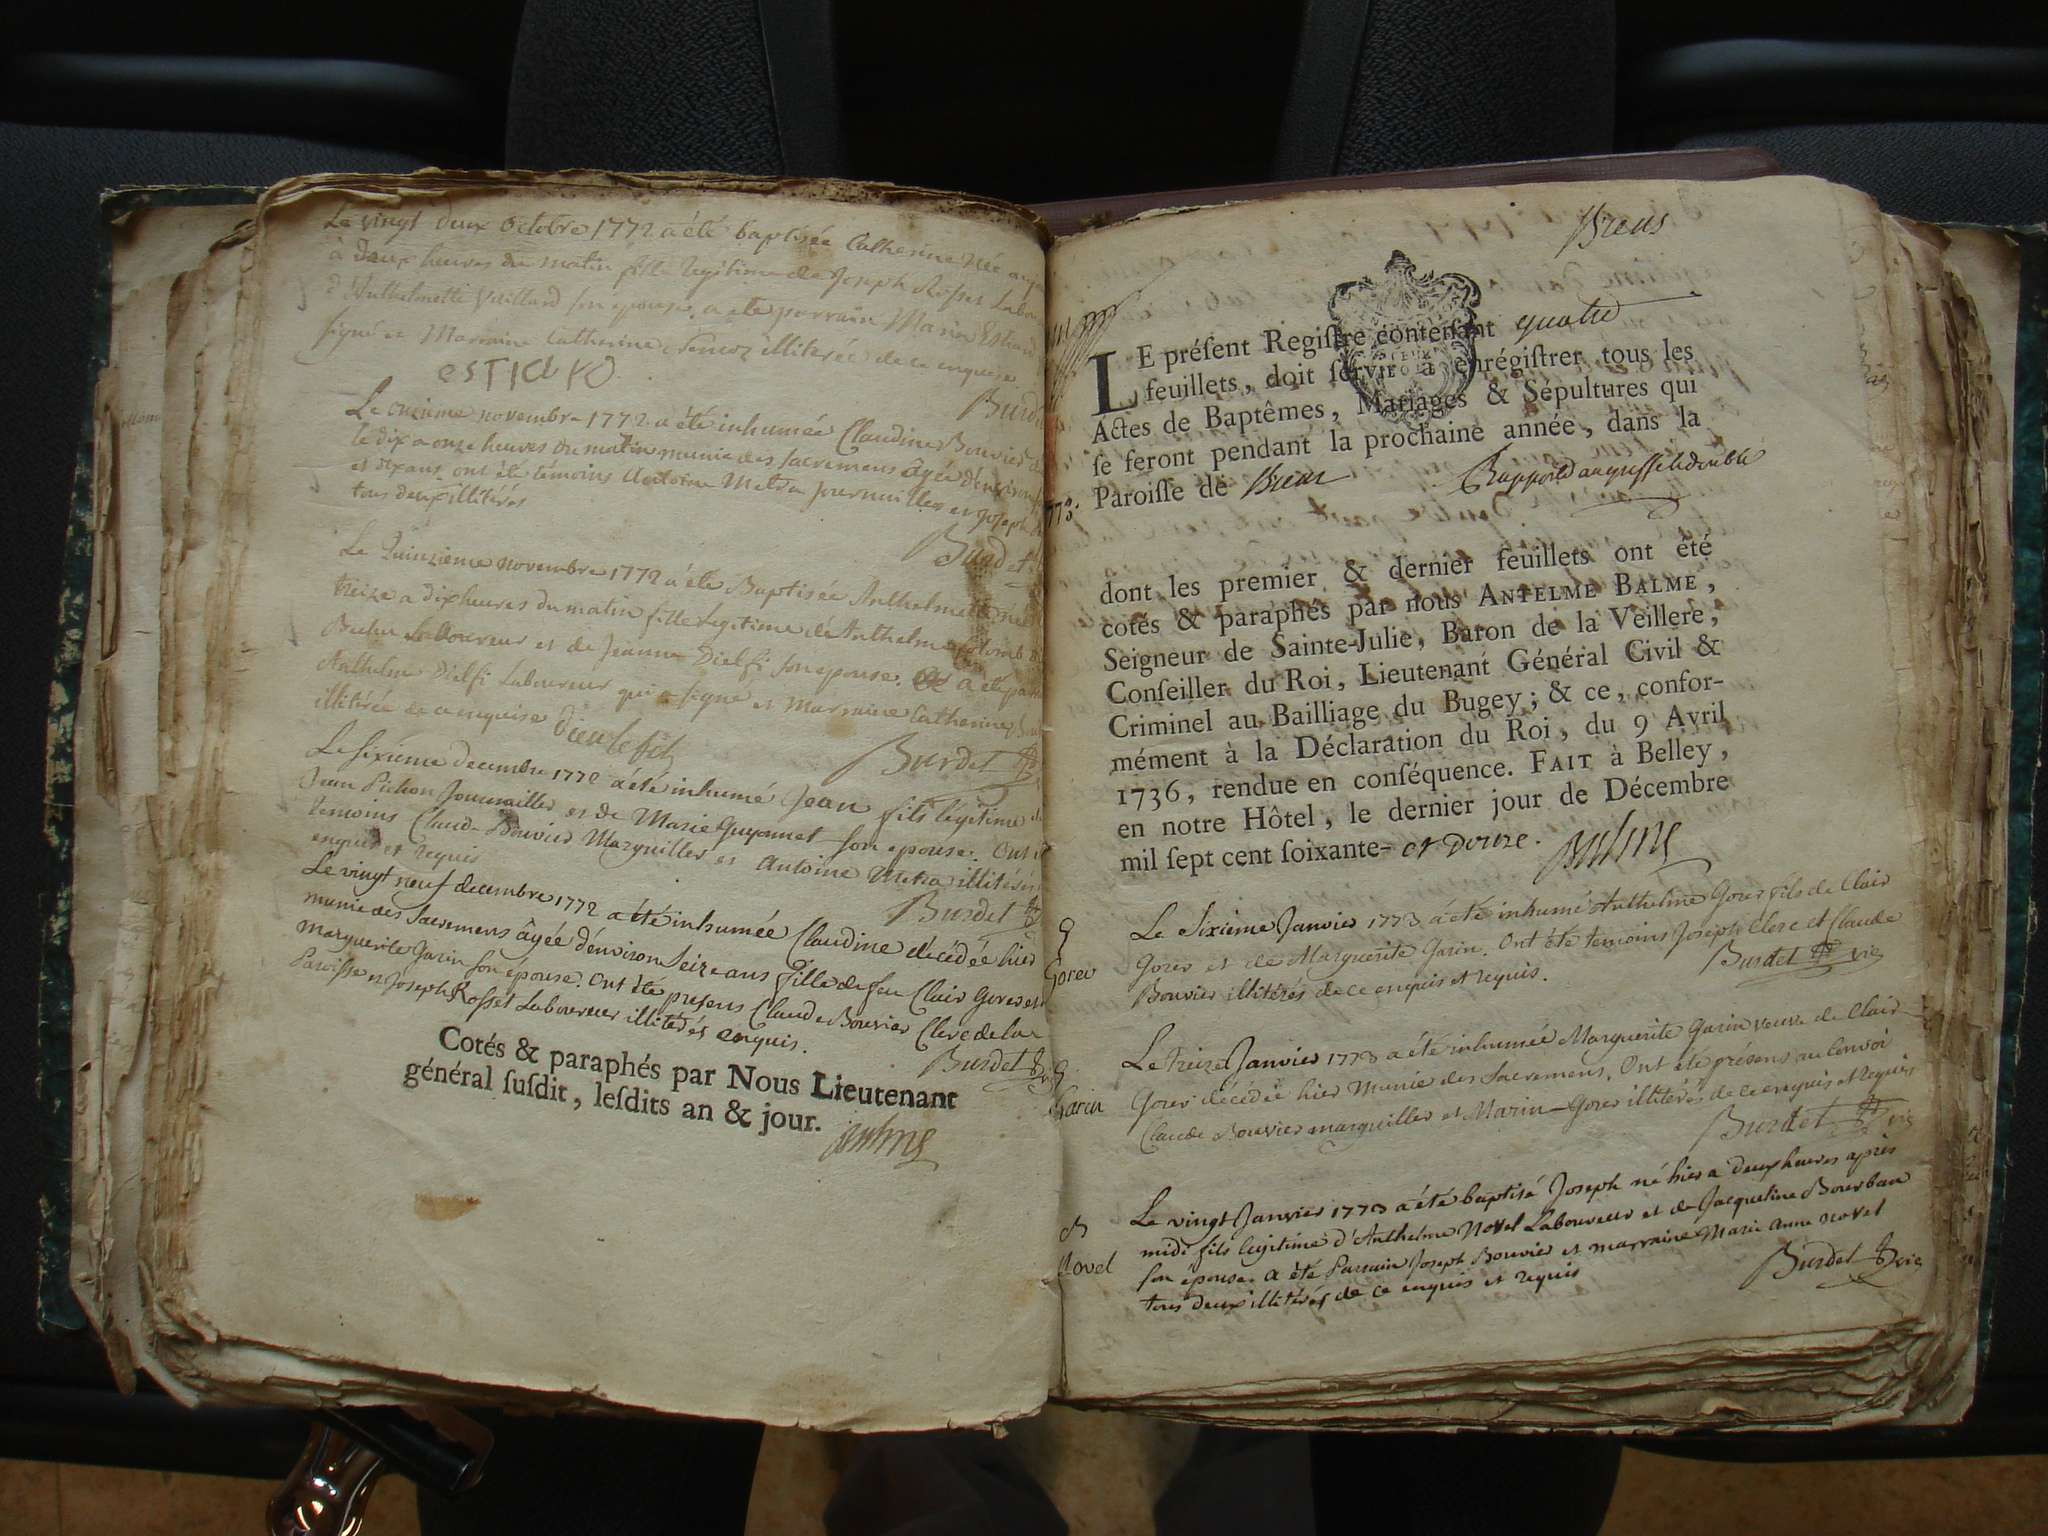 Le vingt deux Octobre 1772 a été baptisée Catherine née
à Deux heures du matin fille legitime de Joseph Rosset Labou
d'Anthelmette Vuillard son epouse. a été parrain Marin
signé et Marraine Catherine illiterée de ce enquise
Burdet
Le onzieme novembre 1772 a été inhumée Claudine Bouvier
le dix a onze heures du matin munie des sacremens âgée d'environ
et dix ans ont été témoins Antoine Metra journailler et Joseph
tous deux illitérés
Burdet
Le Quinzieme novembre 1772 a été Baptisée Anthelmette née
treize a dix heures du matin fille legitime de Anthelme Colomb
Laboureur et de Jeanne Dielfi son epouse. a été par
Anthelme Dielfi Laboureur qui a signé et Marraine Catherine
illitérée de ce enquise Dieulefils
Burdet
Le Sixieme decembre 1772 a été inhumé Jean fils légitime de
Jean Pichon Journailler et de Marie Guyonnet son epouse. Ont été
temoins Claude Bouvier Marguiller et Antoine Metra illitérés
enquis et requis
Burdet
Le vingt neuf decembre 1772 a été inhumée Claudine décédée hier
munie des Sacremens âgée d'environ Seize ans fille de feu Clair Gorer et
Marguerite Garin son épouse. Ont été presens Claude Bouvier Clerc de la
Paroisse et Joseph Rosset Laboureur illitérés enquis.
Burdet
Cotés & paraphés par Nous Lieutenant
général ſuſdit, leſdits an & jour.
Balme
Brens
LE préſent Regiſtre contenant quatre
feuillets, doit ſervir à enrégiſtrer tous les
Actes de Baptêmes, Mariages & Sépultures qui
ſe feront pendant la prochaine année, dans la
Paroiſſe de Brens Rapporté au greffe le double
dont les premier & dernier feuillets ont été
cotés & paraphés par nous ANTELME BALME,
Seigneur de Sainte-Julie, Baron de la Veillere,
Conſeiller du Roi, Lieutenant Général Civil &
Criminel au Bailliage du Bugey; & ce, confor-
mément à la Déclaration du Roi, du 9 Avril
1736, rendue en conſéquence. FAIT à Belley,
en notre Hôtel, le dernier jour de Décembre
mil ſept cent ſoixante- et Douze. Balme
Le Sixieme Janvier 1773 a été inhumé Anthelme Gorer fils de Clair
Gorer Gorer et de Marguerite Garin. Ont été temoins Joseph Clerc et Claude
Bouvier illitérés de ce enquis et requis. Burdet vic
Le treize Janvier 1773 a été inhumée Marguerite Garin veuve de Clair
Garin Gorer décédée hier Munie des Sacremens. Ont été présens au Convoi
Claude Bouvier marguiller et Marin Gorer illitérés de ce enquis et requis
Burdet vic
Le vingt Janvier 1773 a été baptisé Joseph né hier a deux heures après
Novel midi fils legitime d'Anthelme Novel Laboureur et de Jacqueline Bourban
son épouse. a été Parrain Joseph Bouvier et marraine Marie Anne Novel
tous deux illitérés de ce enquis et requis Burdet vic